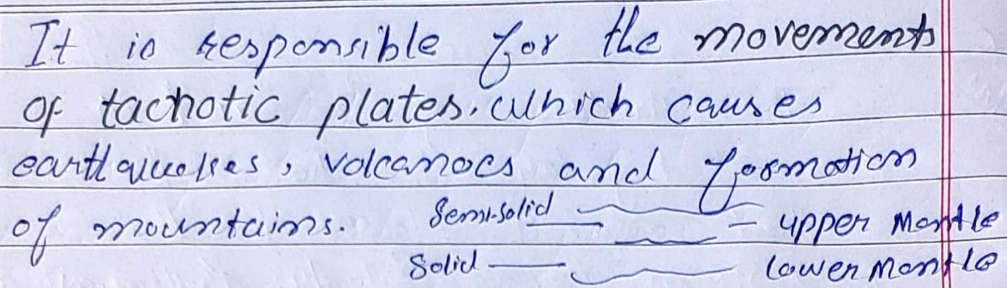 It is responsible for the movements
of tachotic plates. which causes
earthquakes, volcanoes and formation
of mountains. Semi-solid upper Mantle
Solid lower Mantle